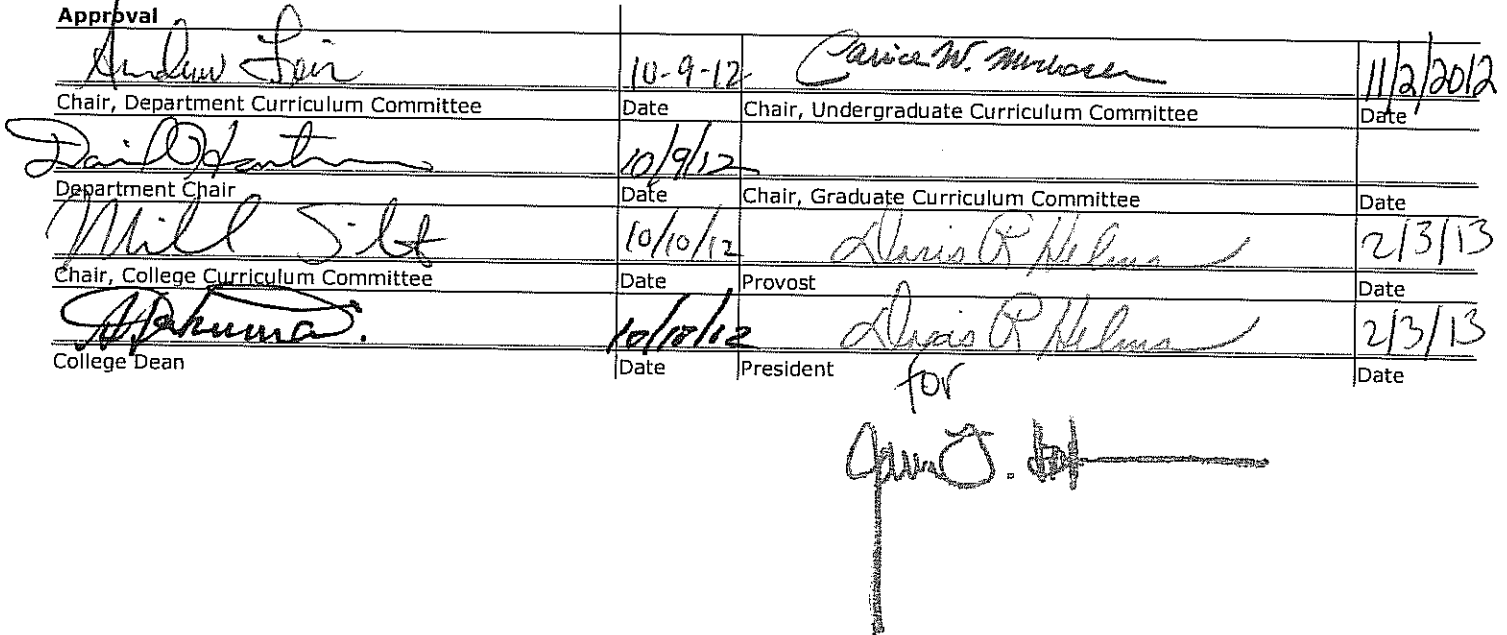 Approval
Andrew 10-9-12 Janice W. 11/2/2012
Chair, Department Curriculum Committee Date Chair, Undergraduate Curriculum Committee Date
10/9/12
Department Chair Date Chair, Graduate Curriculum Committee Date
10/10/12 Doris R Helms 2/3/13
Chair, College Curriculum Committee Date Provost Date
10/10/12 Doris R Helms 2/3/13
College Dean Date President Date
for